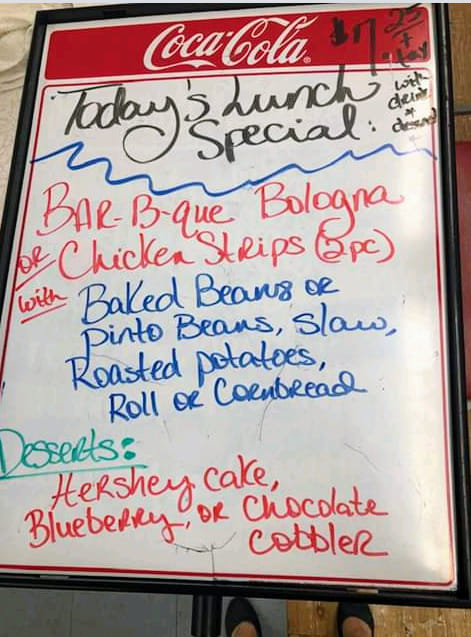 Coca-Cola
$7.25
+ tax
with
drink
+
dessert
Today's Lunch
Special:
BAR-B-que Bologna
OR Chicken Strips (2pc)
with Baked Beans or
Pinto Beans, Slaw,
Roasted potatoes,
Roll or Cornbread
Desserts:
Hershey Cake,
Blueberry, or Chocolate
cobbler